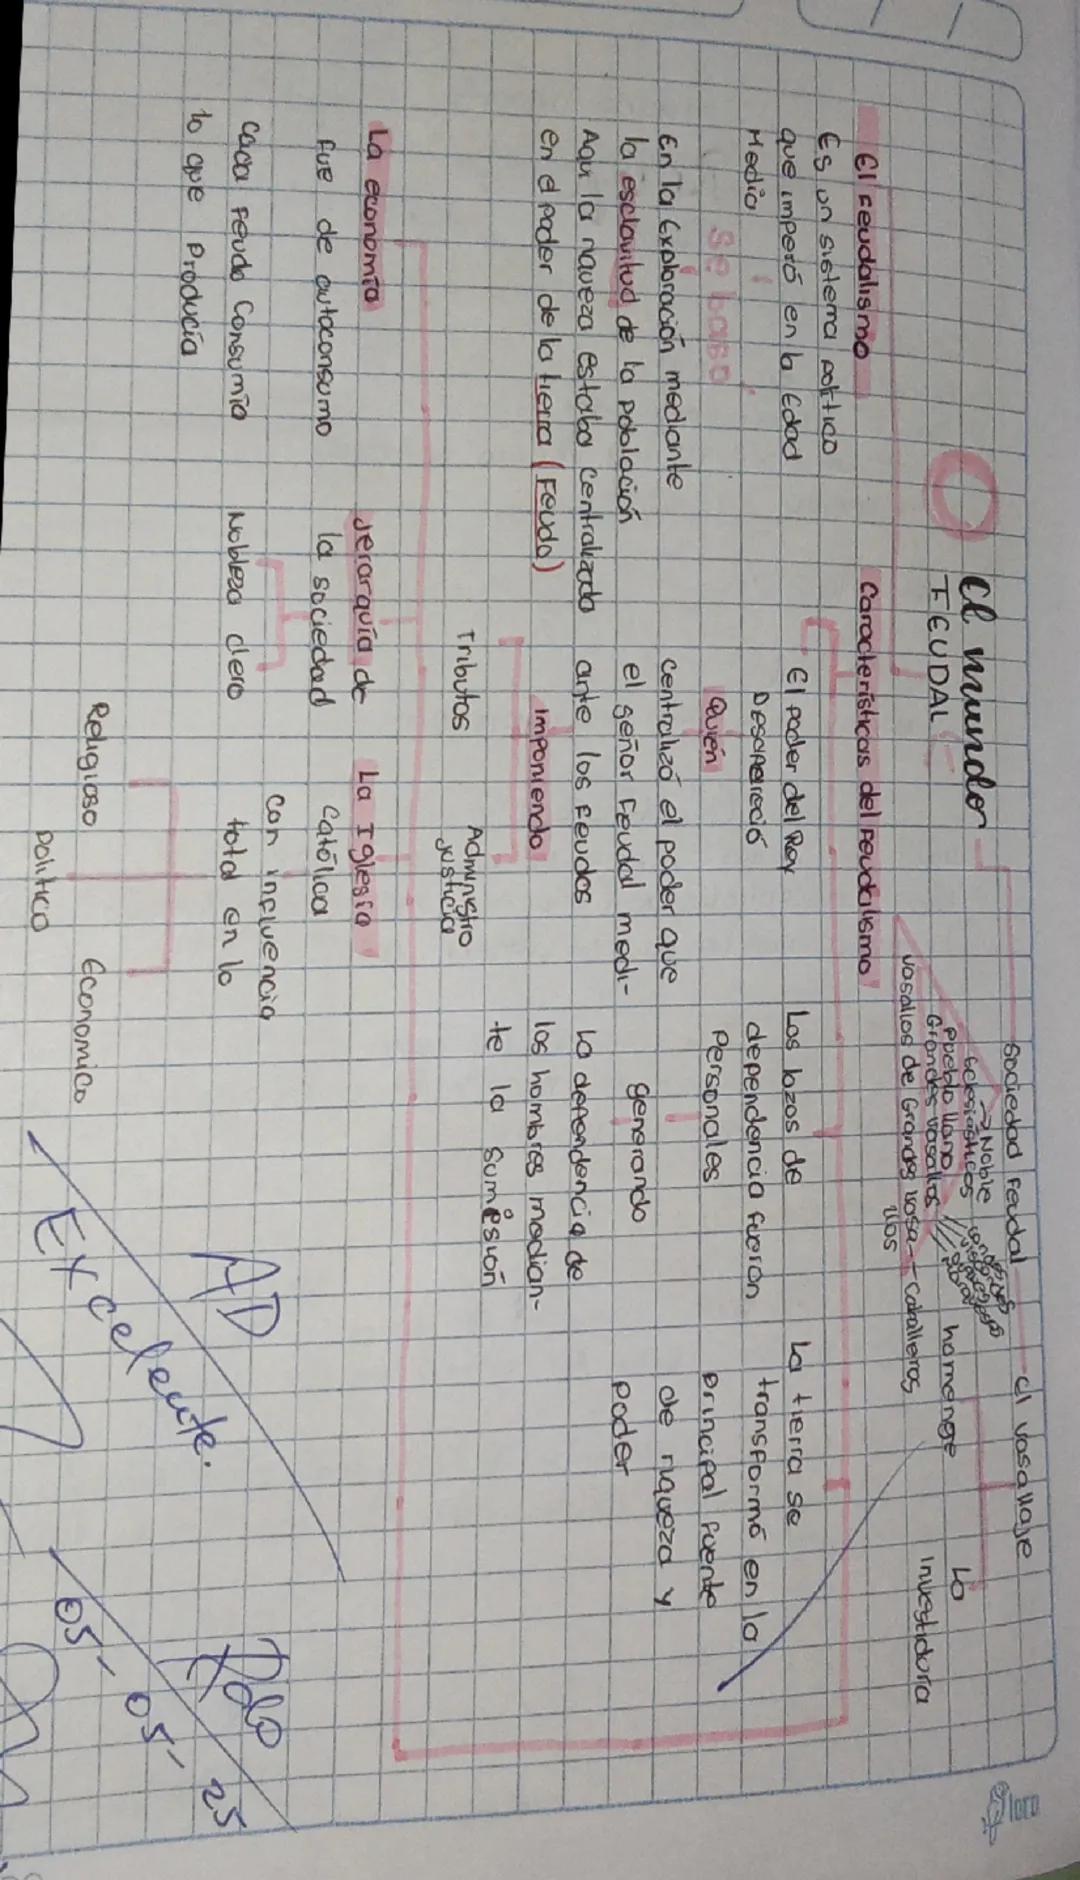 El mundo
FEUDAL
Sociedad Feudal
→ Noble
Eclesiásticos
Pueblo llano
Grandes vasallos
vasallos de Grandes vasa-
llos
caballeros
el vasallaje
homenage
La
Investidura
El Feudalismo
Es un sistema politico
que imperó en la Edad
Media
Se baso
En la Exploración mediante
la esclavitud de la población
Aqui la riqueza estaba centralizada
en el poder de la tierra (Feudo)
Características del Feudalismo
El poder del Rey
Desapareció
Quién
centralizó el poder que
el señor Feudal medi-
ante los feudos
Imponiendo
Tributos
Administro
justicia
Los lazos de
dependencia fueron
Personales
generando
La dependencia de
los hombres median-
te la Sumesión
La tierra se
transformó en la
principal fuente
de riqueza y
poder
La economía
fue de autoconsumo
Cada Feudo Consumía
lo que Producía
Jerarquía de
la sociedad
Nobleza clero
La Iglesia
Católica
Con influencia
total en lo
Religioso
Politico
Economico
AD
Excelente.
05-05-25